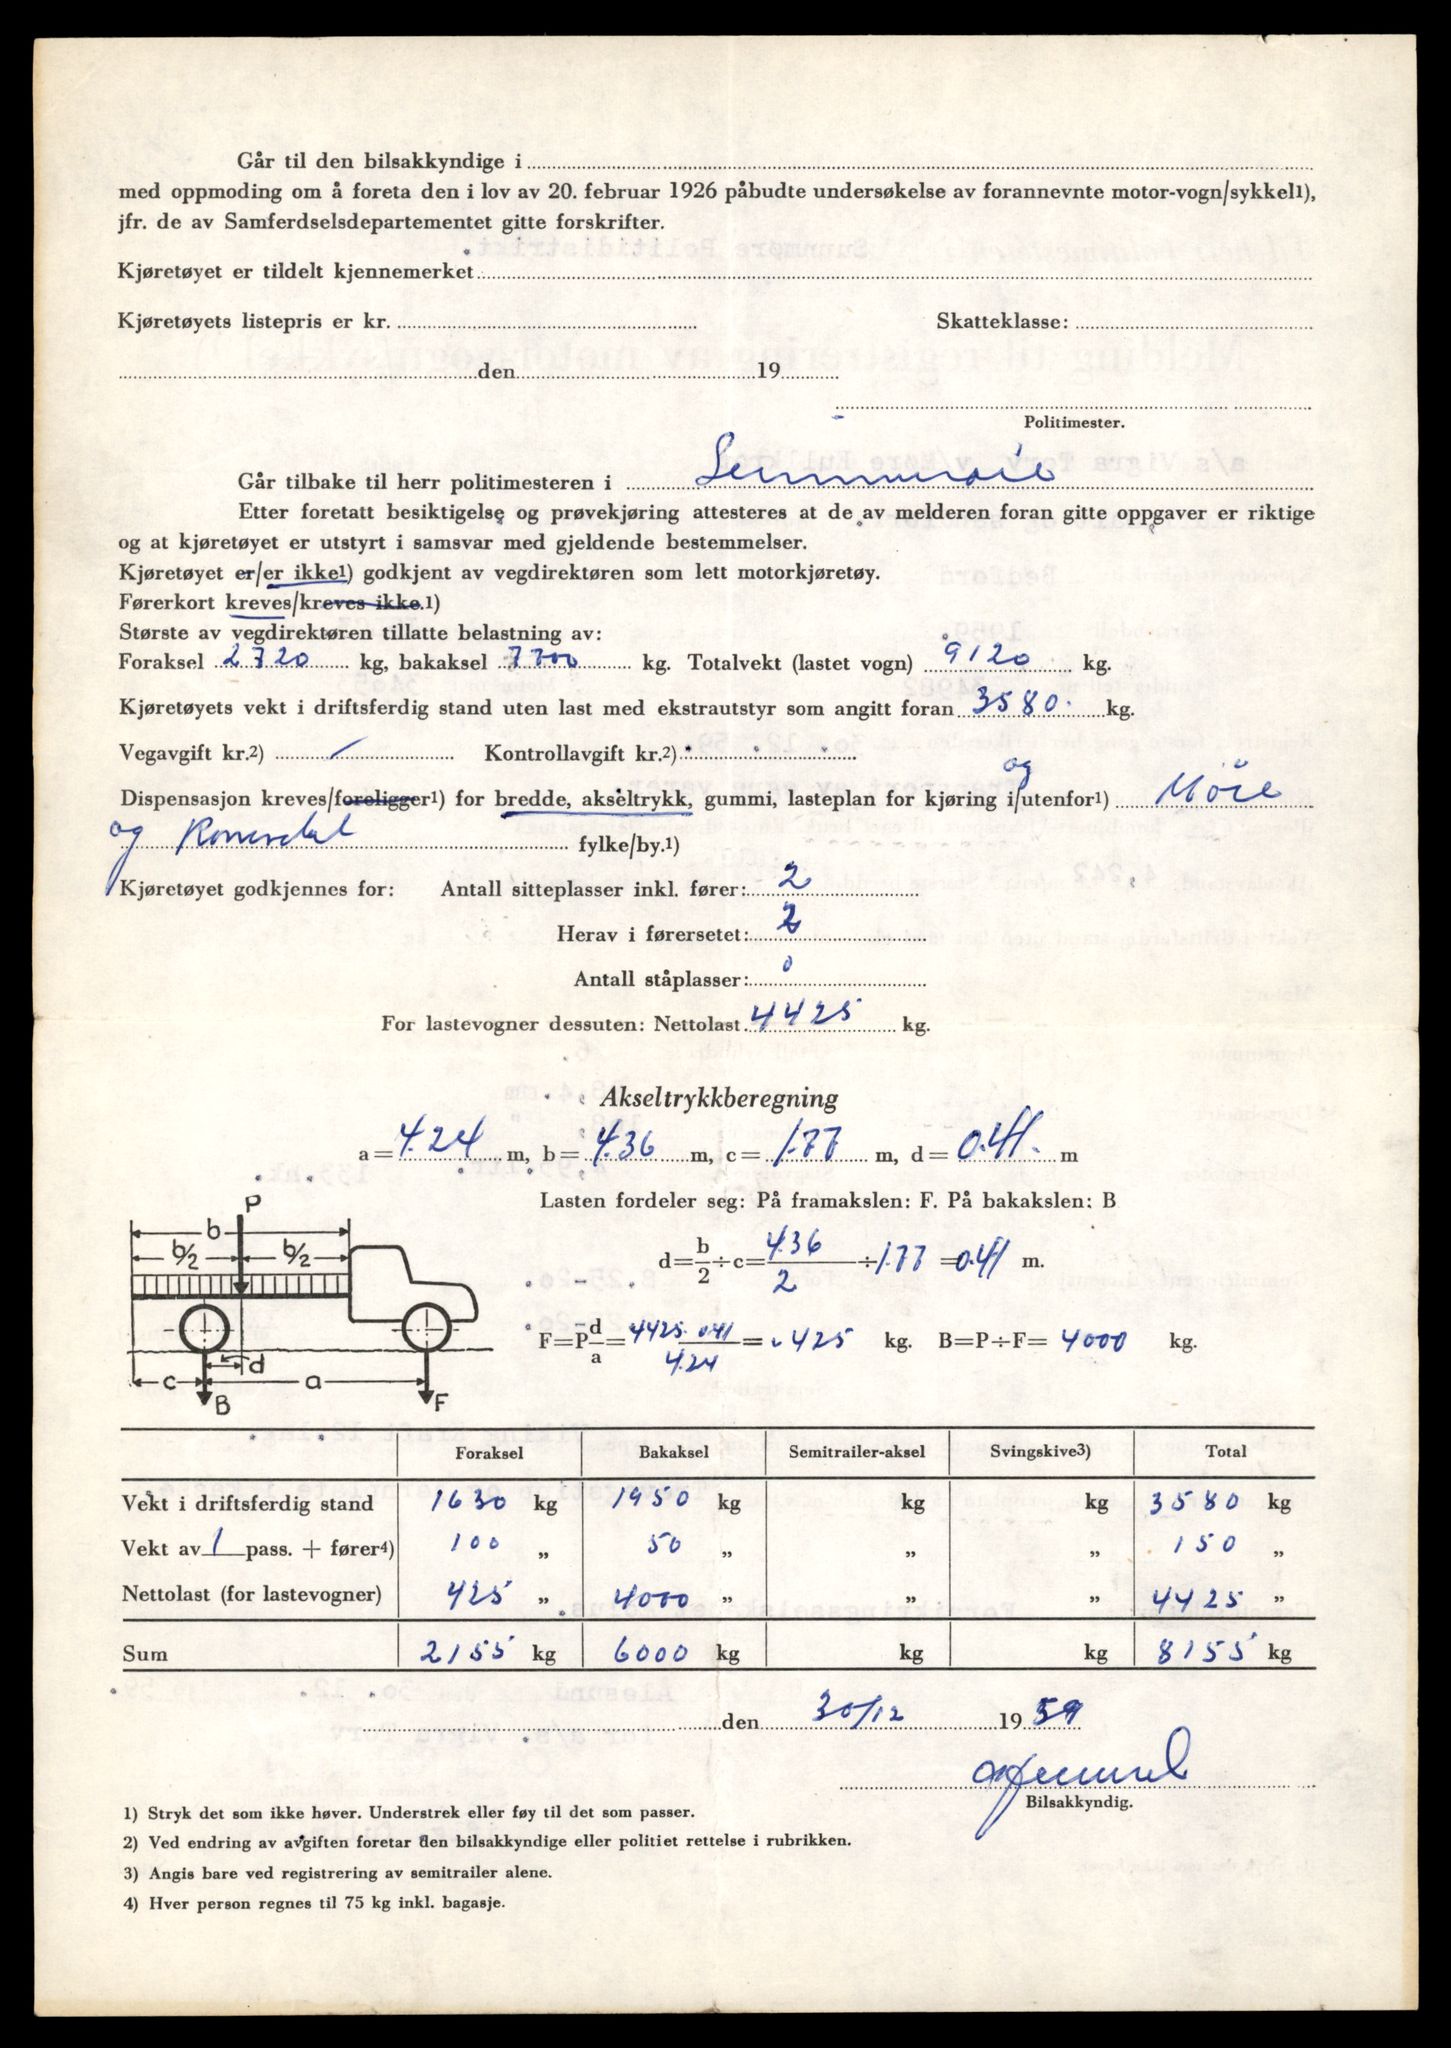 Går til den bilsakkyndige i
med oppmoding om å foreta den i lov av 20. februar 1926 påbudte undersøkelse av forannevnte motor-vogn/sykkel1),
jfr. de av Samferdselsdepartementet gitte forskrifter.
Kjøretøyet er tildelt kjennemerket
Kjøretøyets listepris er kr. Skatteklasse:
den 19
Politimester.
Går tilbake til herr politimesteren i Sunnmøre
Etter foretatt besiktigelse og prøvekjøring attesteres at de av melderen foran gitte oppgaver er riktige
og at kjøretøyet er utstyrt i samsvar med gjeldende bestemmelser.
Kjøretøyet er/er ikke1) godkjent av vegdirektøren som lett motorkjøretøy.
Førerkort kreves/kreves ikke.1)
Største av vegdirektøren tillatte belastning av:
Foraksel 2720 kg, bakaksel 7700 kg. Totalvekt (lastet vogn) 9120 kg.
Kjøretøyets vekt i driftsferdig stand uten last med ekstrautstyr som angitt foran 3580 kg.
Vegavgift kr.2) / Kontrollavgift kr.2)
og
Dispensasjon kreves/foreligger1) for bredde, akseltrykk, gummi, lasteplan for kjøring i/utenfor1) Möre
og Romsdal fylke/by.1)
Kjøretøyet godkjennes for: Antall sitteplasser inkl. fører: 2
Herav i førersetet: 2
Antall ståplasser: 0
For lastevogner dessuten: Nettolast 4425 kg.
Akseltrykkberegning
a = 4.24 m, b = 4.36 m, c = 1.77 m, d = 0.41 m
Lasten fordeler seg: På framakslen: F. På bakakslen: B
d = b/2 ÷ c = 4.36/2 ÷ 1.77 = 0.41 m.
F = P d/a = 4425 . 0.41/4.24 = 425 kg. B = P ÷ F = 4000 kg.
P
b
b/2 b/2
d
c a
B F
Foraksel Bakaksel Semitrailer-aksel Svingskive3) Total
Vekt i driftsferdig stand 1630 kg 1950 kg kg kg 3580 kg
Vekt av 1 pass. + fører4) 100 „ 50 „ „ „ 150 „
Nettolast (for lastevogner) 425 „ 4000 „ „ „ 4425 „
Sum 2155 kg 6000 kg kg kg 8155 kg
den 30/12 1959
Bilsakkyndig.
1) Stryk det som ikke høver. Understrek eller føy til det som passer.
2) Ved endring av avgiften foretar den bilsakkyndige eller politiet rettelse i rubrikken.
3) Angis bare ved registrering av semitrailer alene.
4) Hver person regnes til 75 kg inkl. bagasje.